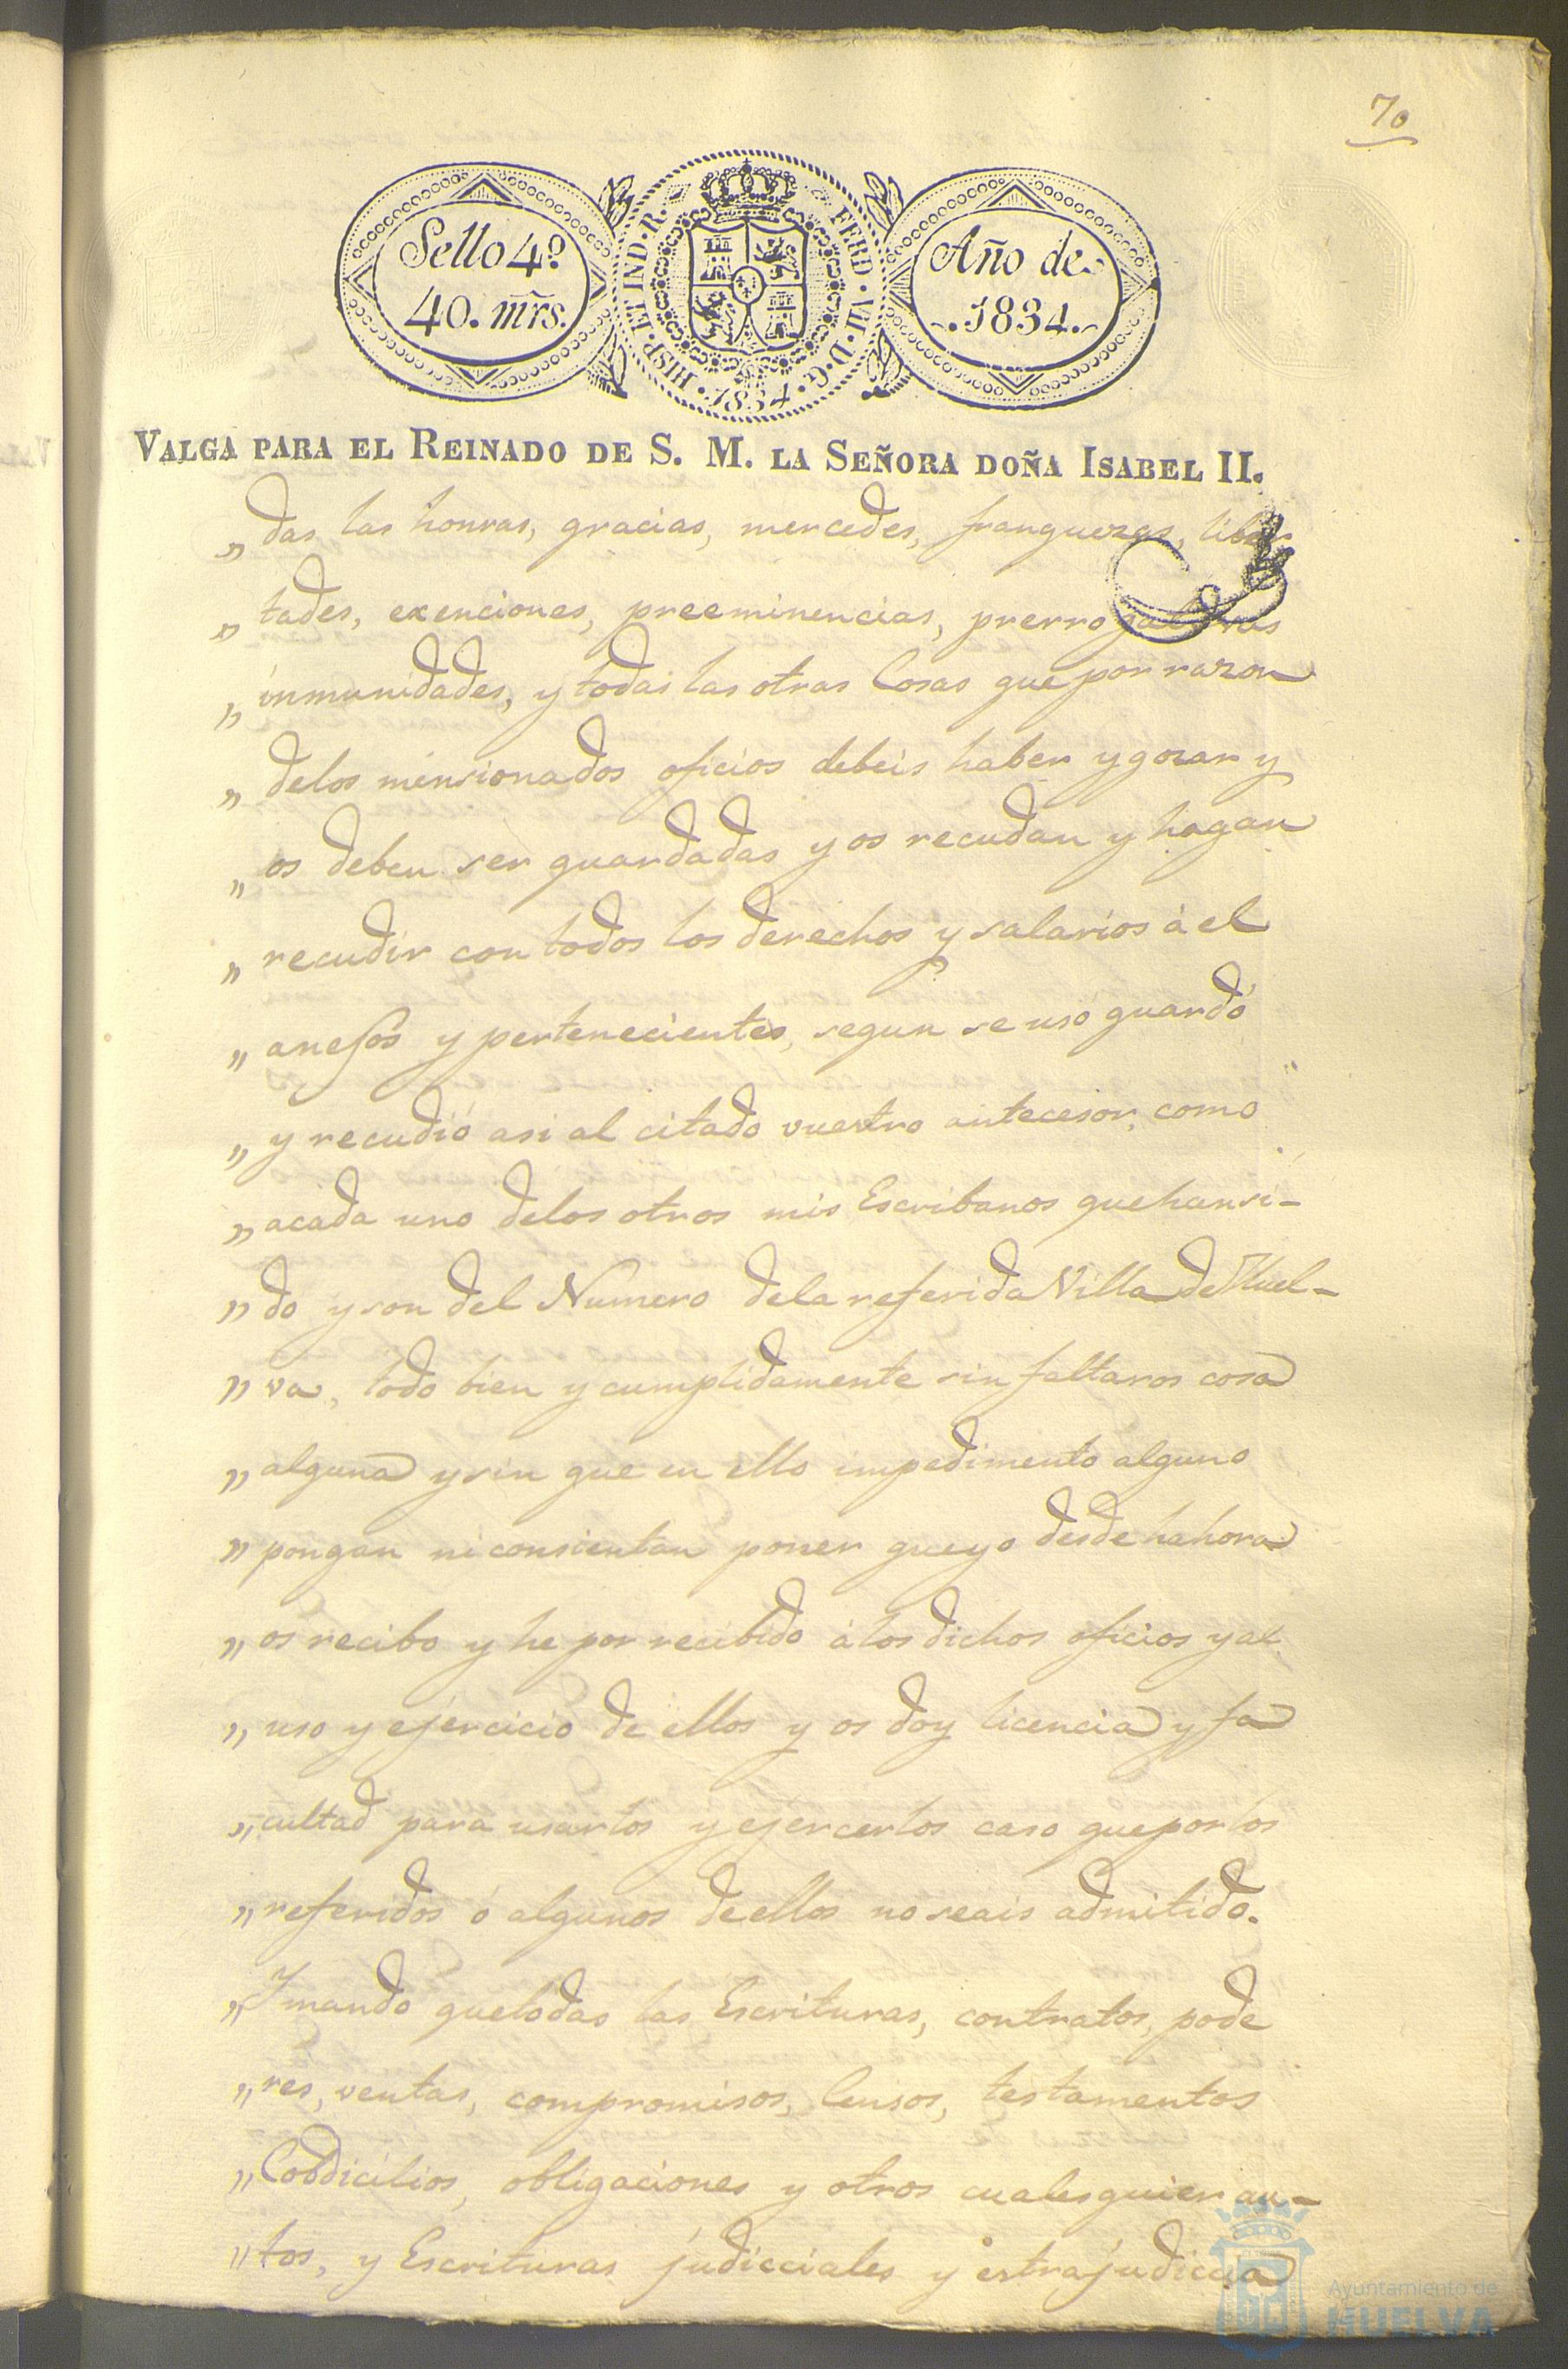 70
Sello 4º
40. mrs.
HISP. ET IND. R.
FERD. VII. D. G.
1834
Año de
1834.
VALGA PARA EL REINADO DE S. M. LA SEÑORA DOÑA ISABEL II.
„ das las honras, gracias, mercedes, franquezas, liber
„ tades, exenciones, preeminencias, prerrogativas
„ inmunidades, y todas las otras Cosas que por razon
„ delos mensionados oficios debeis haber y gozar y
„ os deben ser guardadas y os recudan y hagan
„ recudir con todos los derechos y salarios á el
„ anesós y pertenecientes, segun se usó guardó
„ y recudió asi al citado vuestro antecesor, como
„ acada uno delos otros mis Escribanos que han si-
„ do y son del Numero dela referida Villa de Huel-
„ va, todo bien y cumplidamente sin faltaros cosa
„ alguna y sin que en ello impedimento alguno
„ pongan ni consientan poner que yo desde hahora
„ os recibo y he por recibido á los dichos oficios y al
„ uso y ejercicio de ellos y os doy licencia y fa
„ cultad para usarlos y ejercerlos caso que por los
„ referidos ó algunos de ellos no seais admitido.
„ Y mando que todas las Escrituras, contratos, pode
„ res, ventas, compromisos, Censos, testamentos
„ Cobdicilios, obligaciones y otros cualesquier au-
„ tos, y Escrituras judicciales y estrajudiccia
Ayuntamiento de
HUELVA